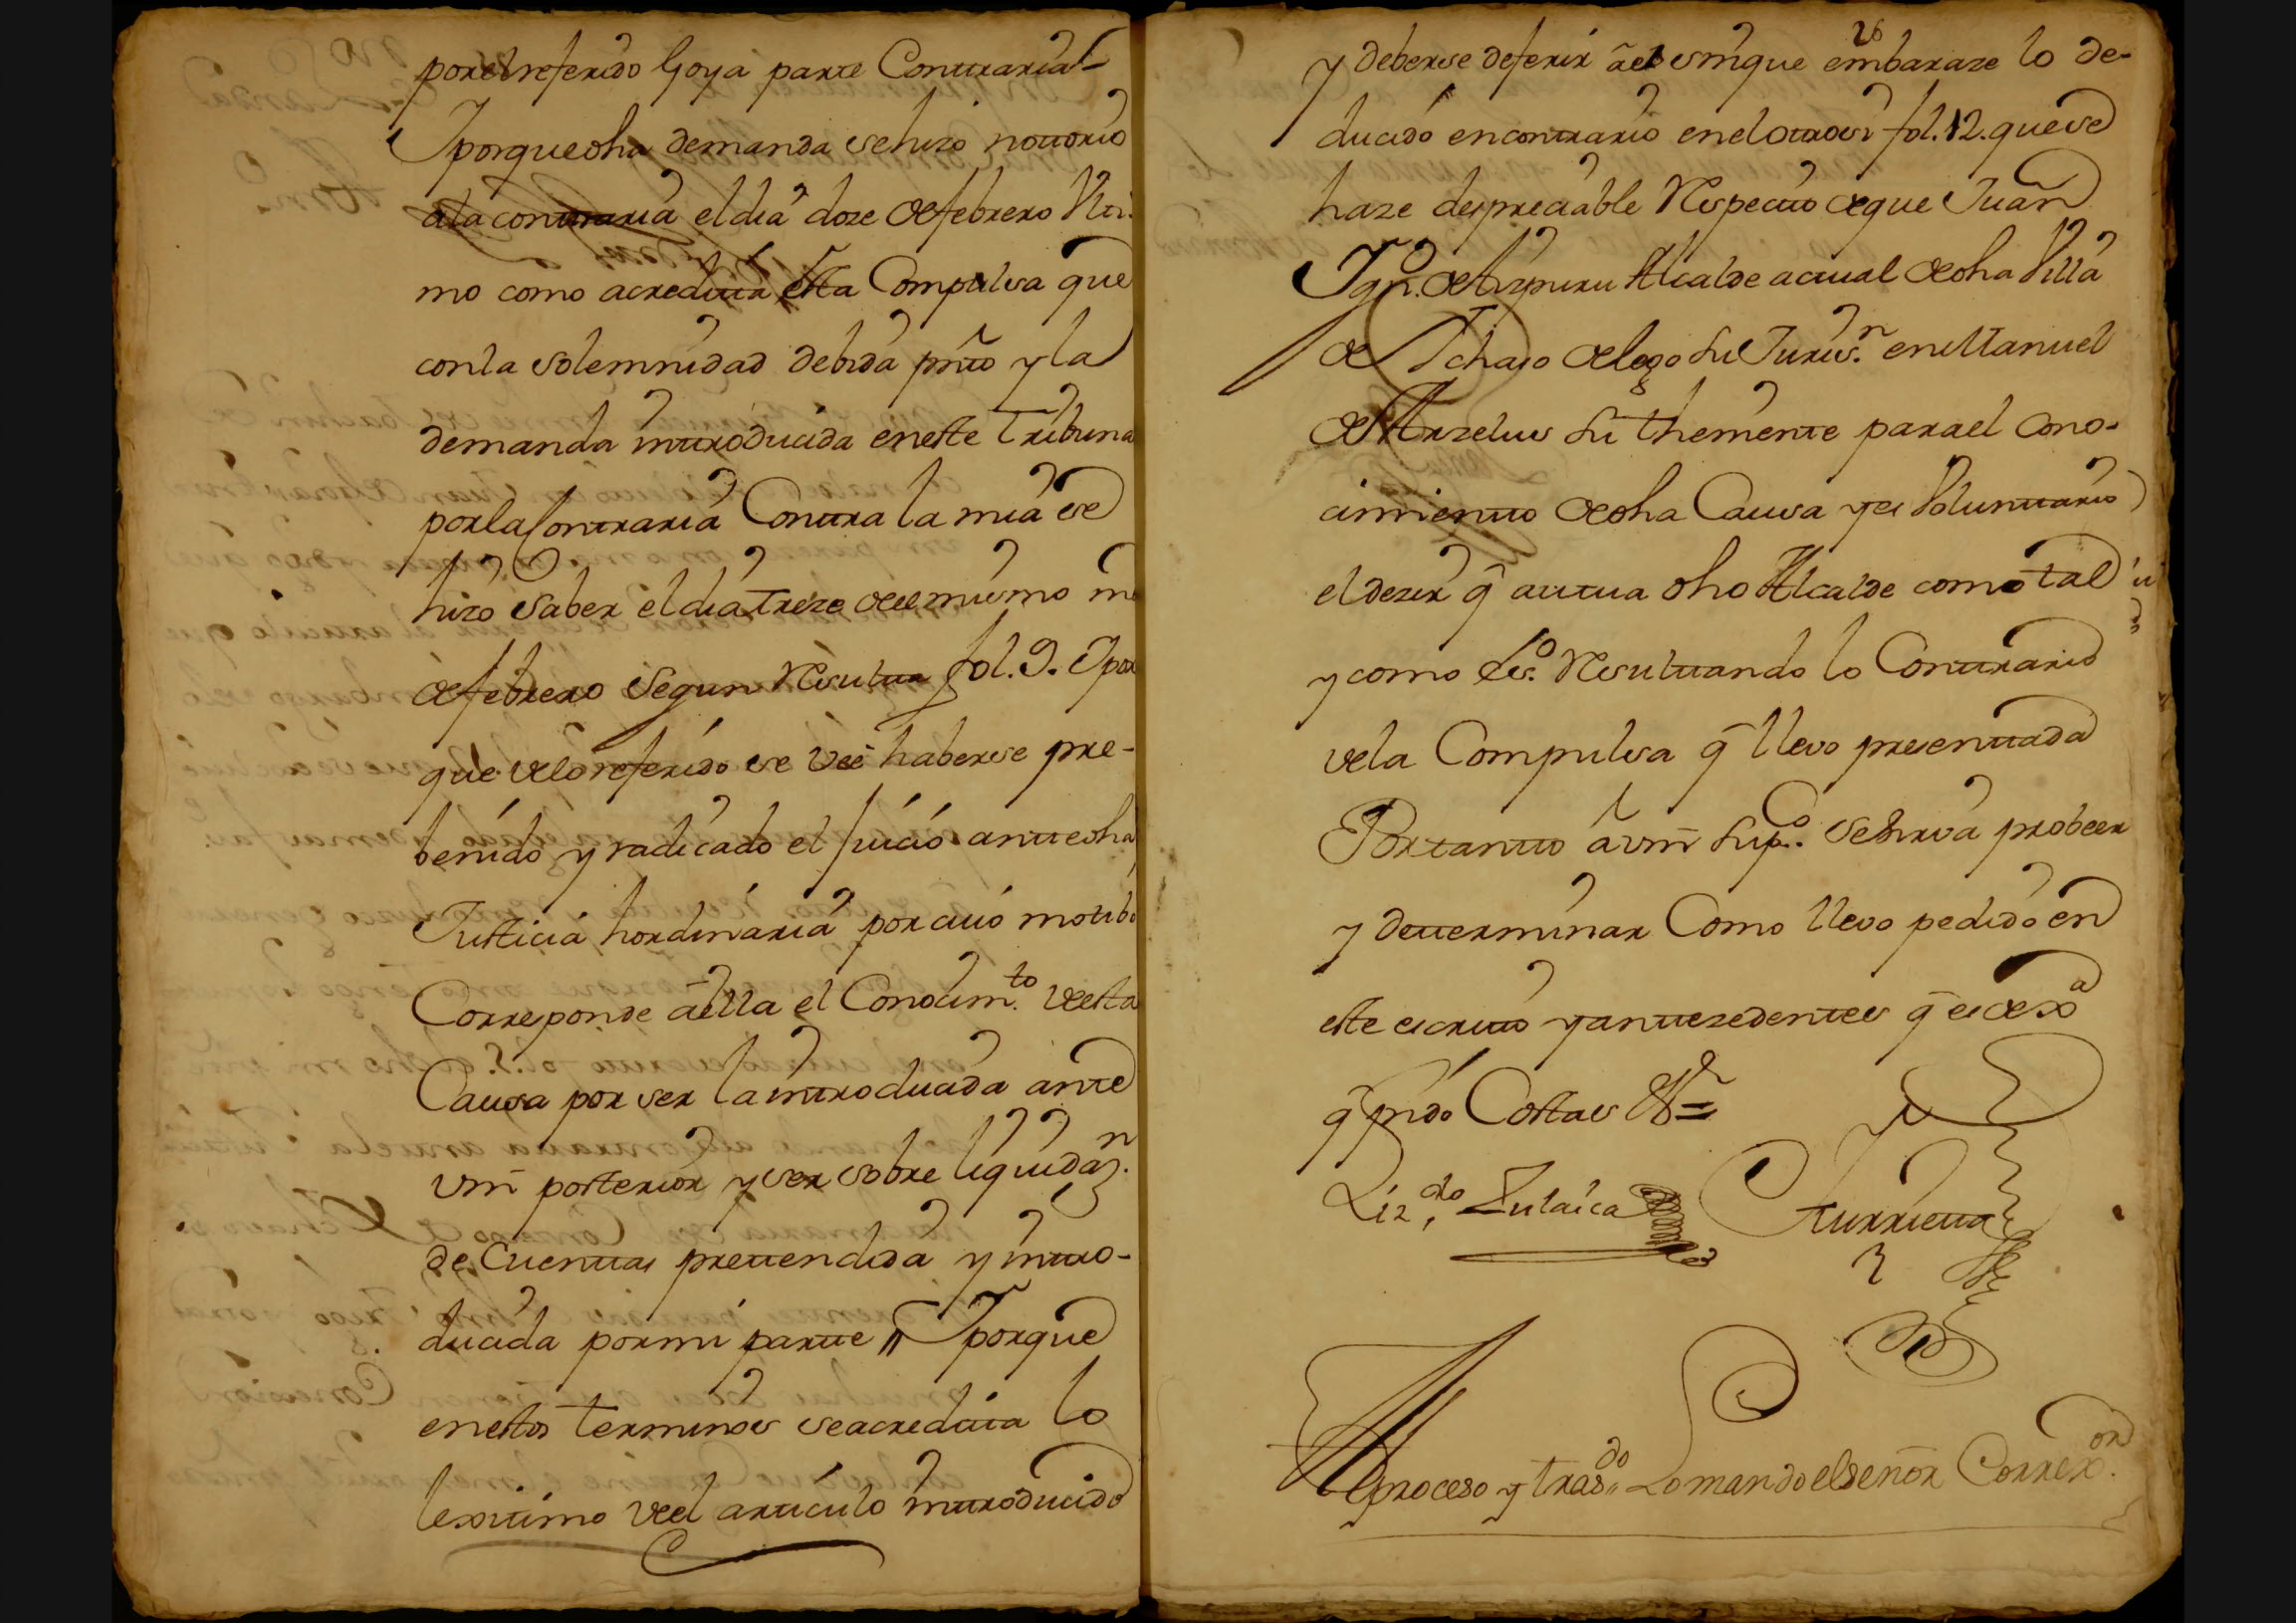 por el referido Goya parte Contraria
Y porque dha demanda se hizo notorio
a la contraria el dia doze de febrero Ulti-
mo como acredita esta Compulsa que
con la solemnidad debida pnto y la
demanda introducida en este Tribuna
por la Contraria Contra la mia se
hizo saber el dia treze de el mismo m
de febrero segun Resulta fol. 9. Y por
que de lo referido se vee haberse pre-
benido y radicado el Juicio ante dha
Justicia hordinaria por cuio motibo
Corresponde a ella el Conocimto de esta
Causa por ser la introducida ante
vm posterior y ser sobre liquidazn.
de Cuentas pretendida y intro-
ducida por mi parte // Y porque
en estos terminos se acredita lo
lexitimo de el articulo introducido
26
y deberse deferir a el sin que embaraze lo de-
ducido en contrario en el otrosi fol. 12. que se
haze despreciable Respecto de que Juan
Ign.o de Aizpuru Alcalde actual de dha Villa
de Ichaso delego su Jurisn. en Manuel
de Arzelus su theniente para el cono-
cimiento de dha Causa y es Voluntario
el dezir q actua dho Alcalde como tal
y como Resultando lo Contrario
de la Compulsa q llevo presentada
Por tanto a vm supco. se sirva probeer
y determinar Como llevo pedido en
este escrito y antezedentes q es de xa
q pido Costas &=
Lizdo. Zulaica Iturrieta
Al proceso y trasdo Lo mando el señor Correxor.